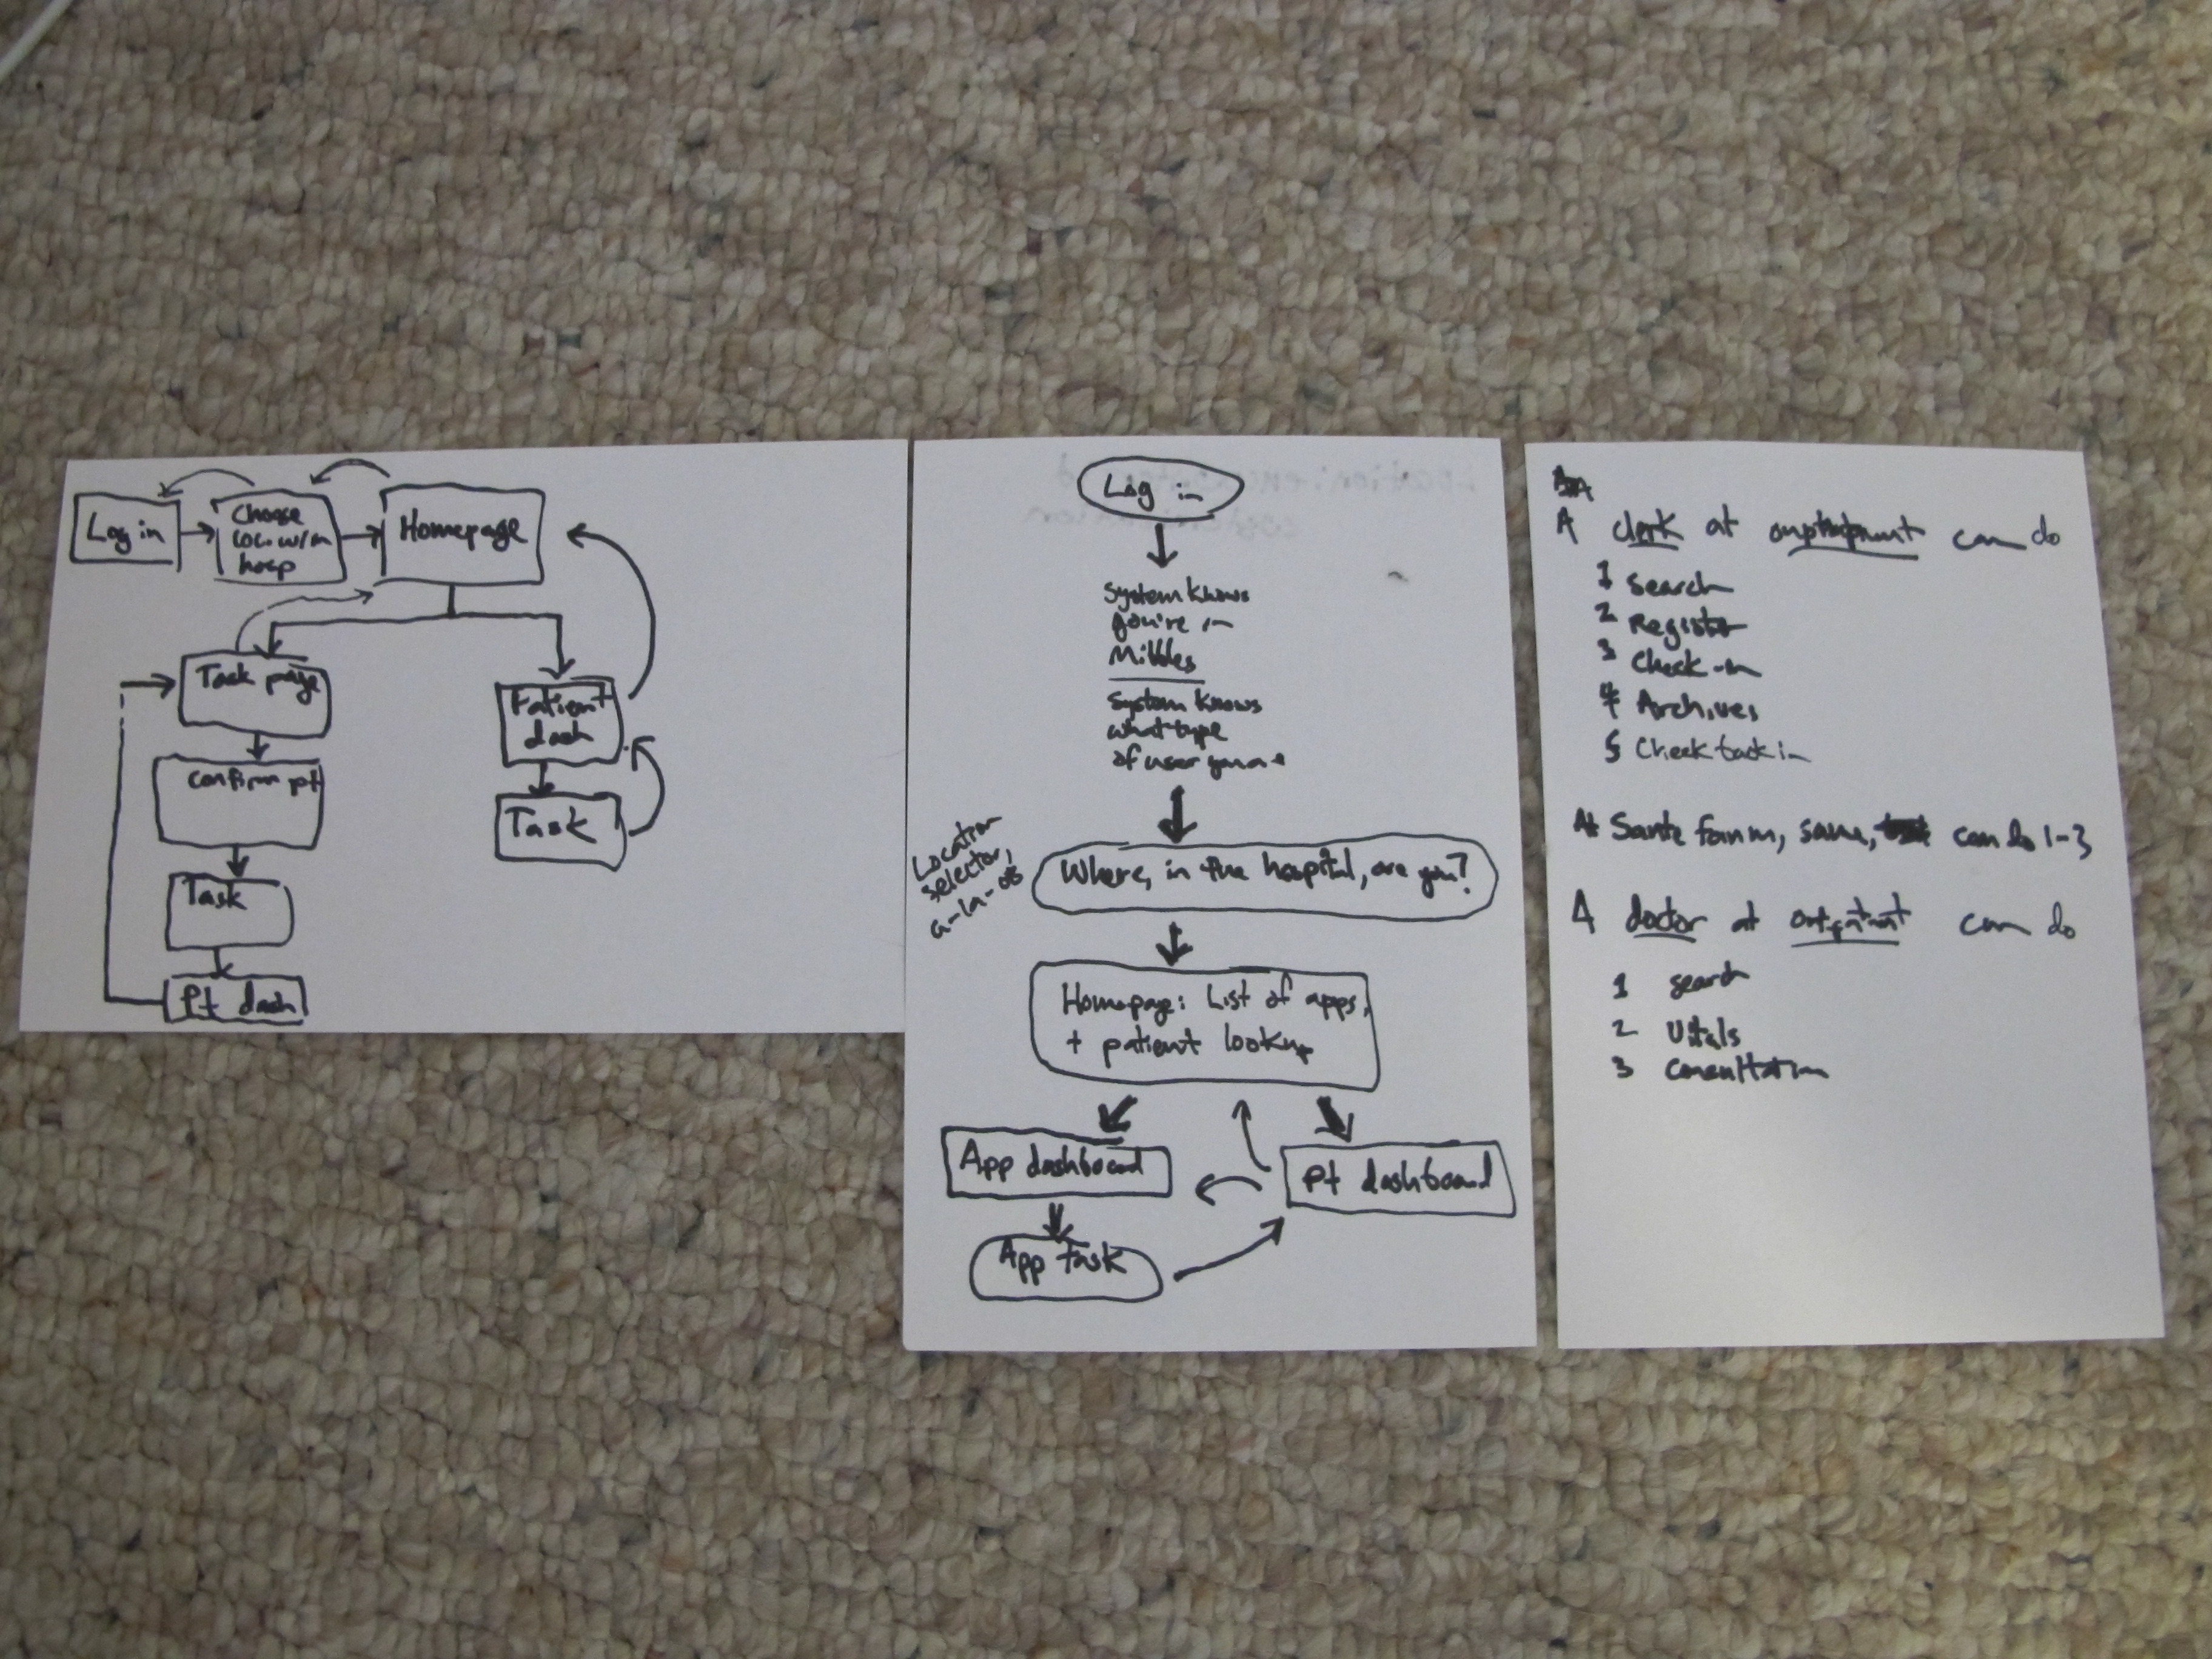 Log in
Choose
loc. w/in
hosp
Homepage
Task page
Confirm pt
Task
Pt dash
Patient
dash
Task
Log in
System knows
you're in
Mibbles
System knows
what type
of user you are
Location
selector,
a-la-
Where, in the hospital, are you?
Homepage: List of apps,
+ patient lookup
App dashboard
Pt dashboard
App task
A clerk at can do
1 Search
2 Register
3 Check-in
4 Archives
5 Check back in
At Sante fanm, same, can do 1-3
A doctor at outpatient can do
1 search
2 Vitals
3 Consultation